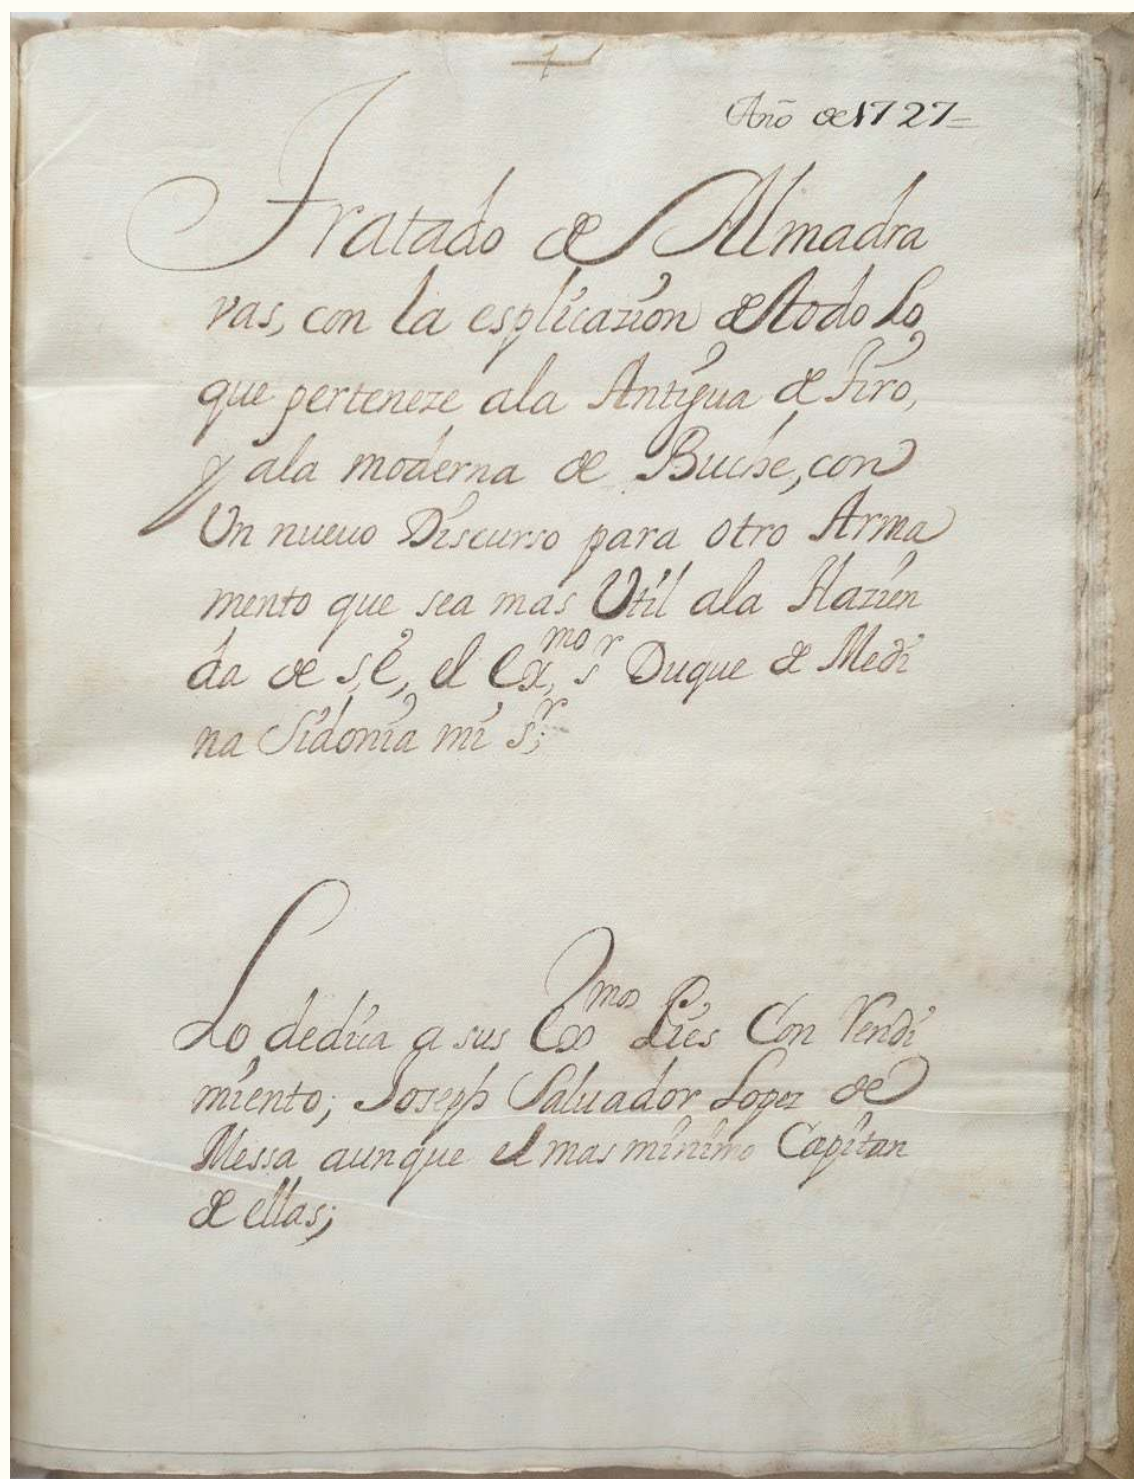 Año de 1727=
Tratado de Almadra
vas, con la esplicazion de todo Lo
que perteneze ala Antigua de Tiro,
y ala moderna de Buche, con
Un nueuo Discurso para otro Arma
mento que sea mas Util ala Hazien
da de S,E, el Exmo, sr Duque de Medi
na Sidonia mi sr;
Lo dedica a sus Exmos Pies Con Rendi
miento; Joseph Saluador Lopez de
Messa aunque el mas minimo Capitan
de ellas;